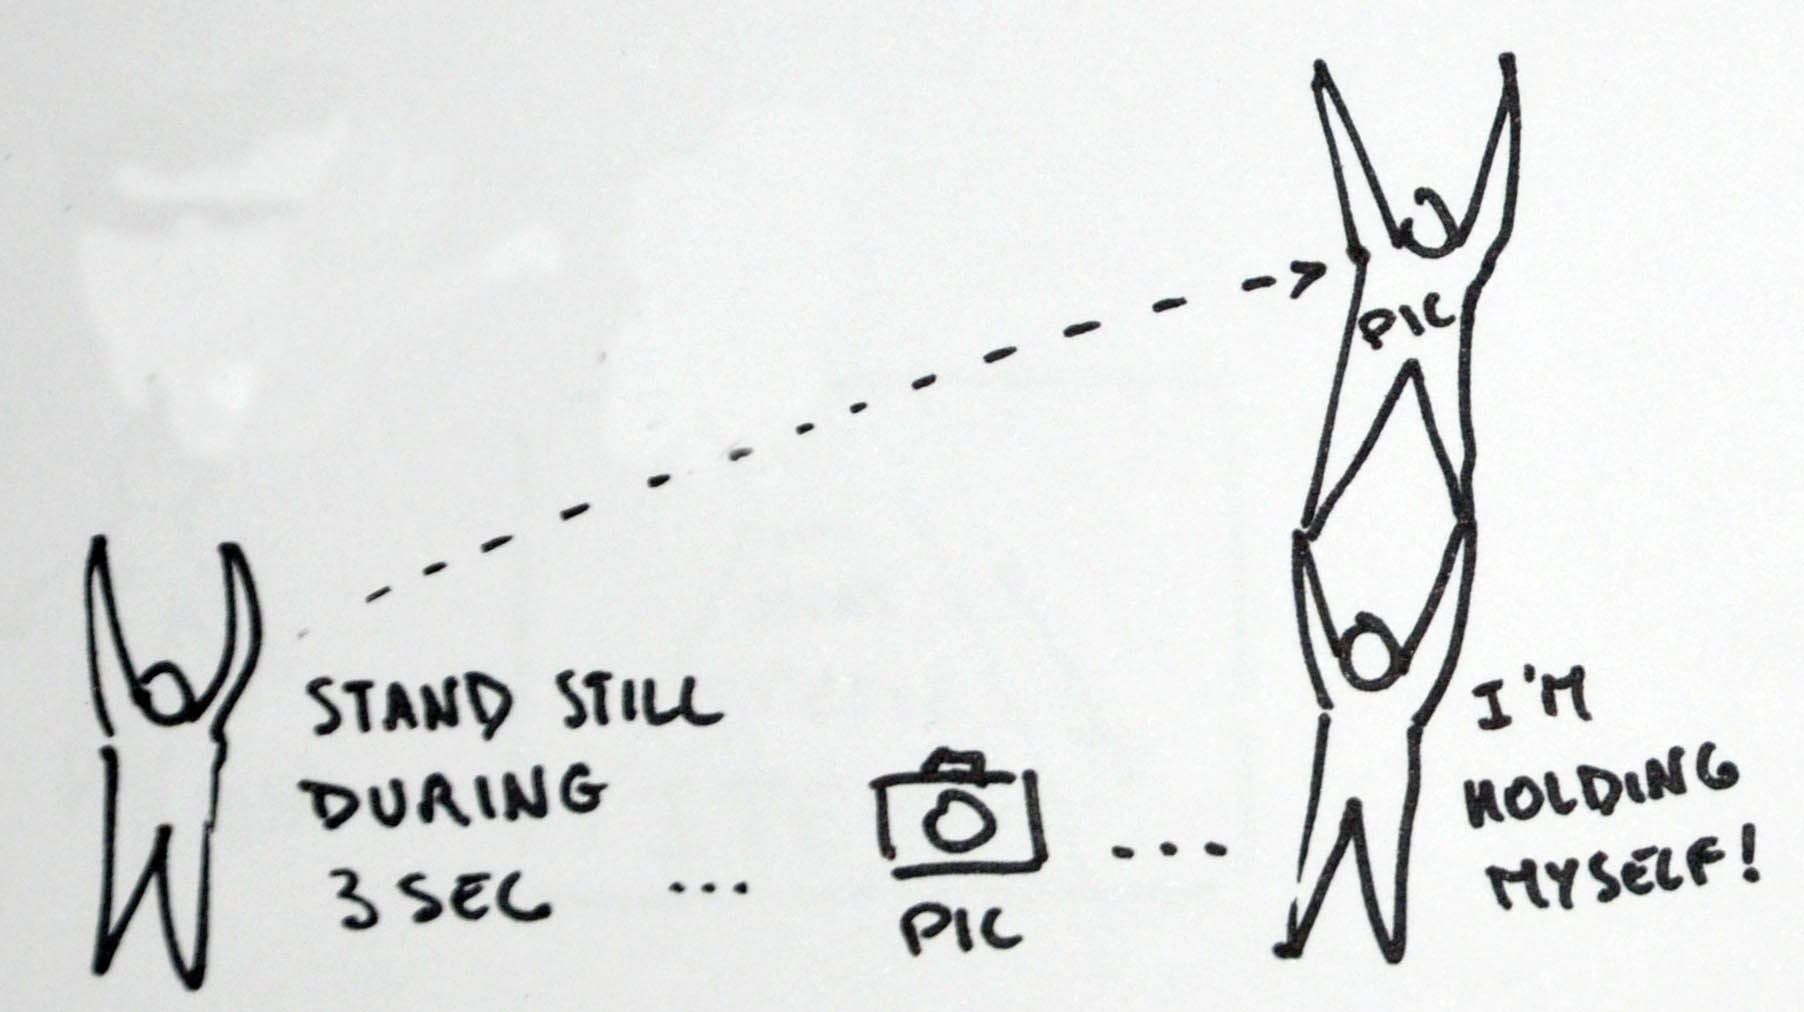 PIC
STAND STILL
DURING
3 SEC ...
PIC
...
I'M
HOLDING
MYSELF!